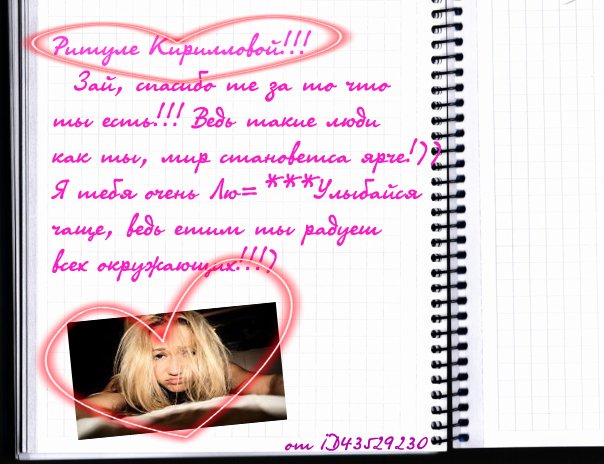 Ритуле Кирилловой!!!
Зай, спасибо те за то что
ты есть!!! Ведь такие люди
как ты, мир становетса ярче!))
Я тебя очень Лю=***Улыбайся
чаще, ведь етим ты радуеш
всех окружающих!!!)
от iD43529230